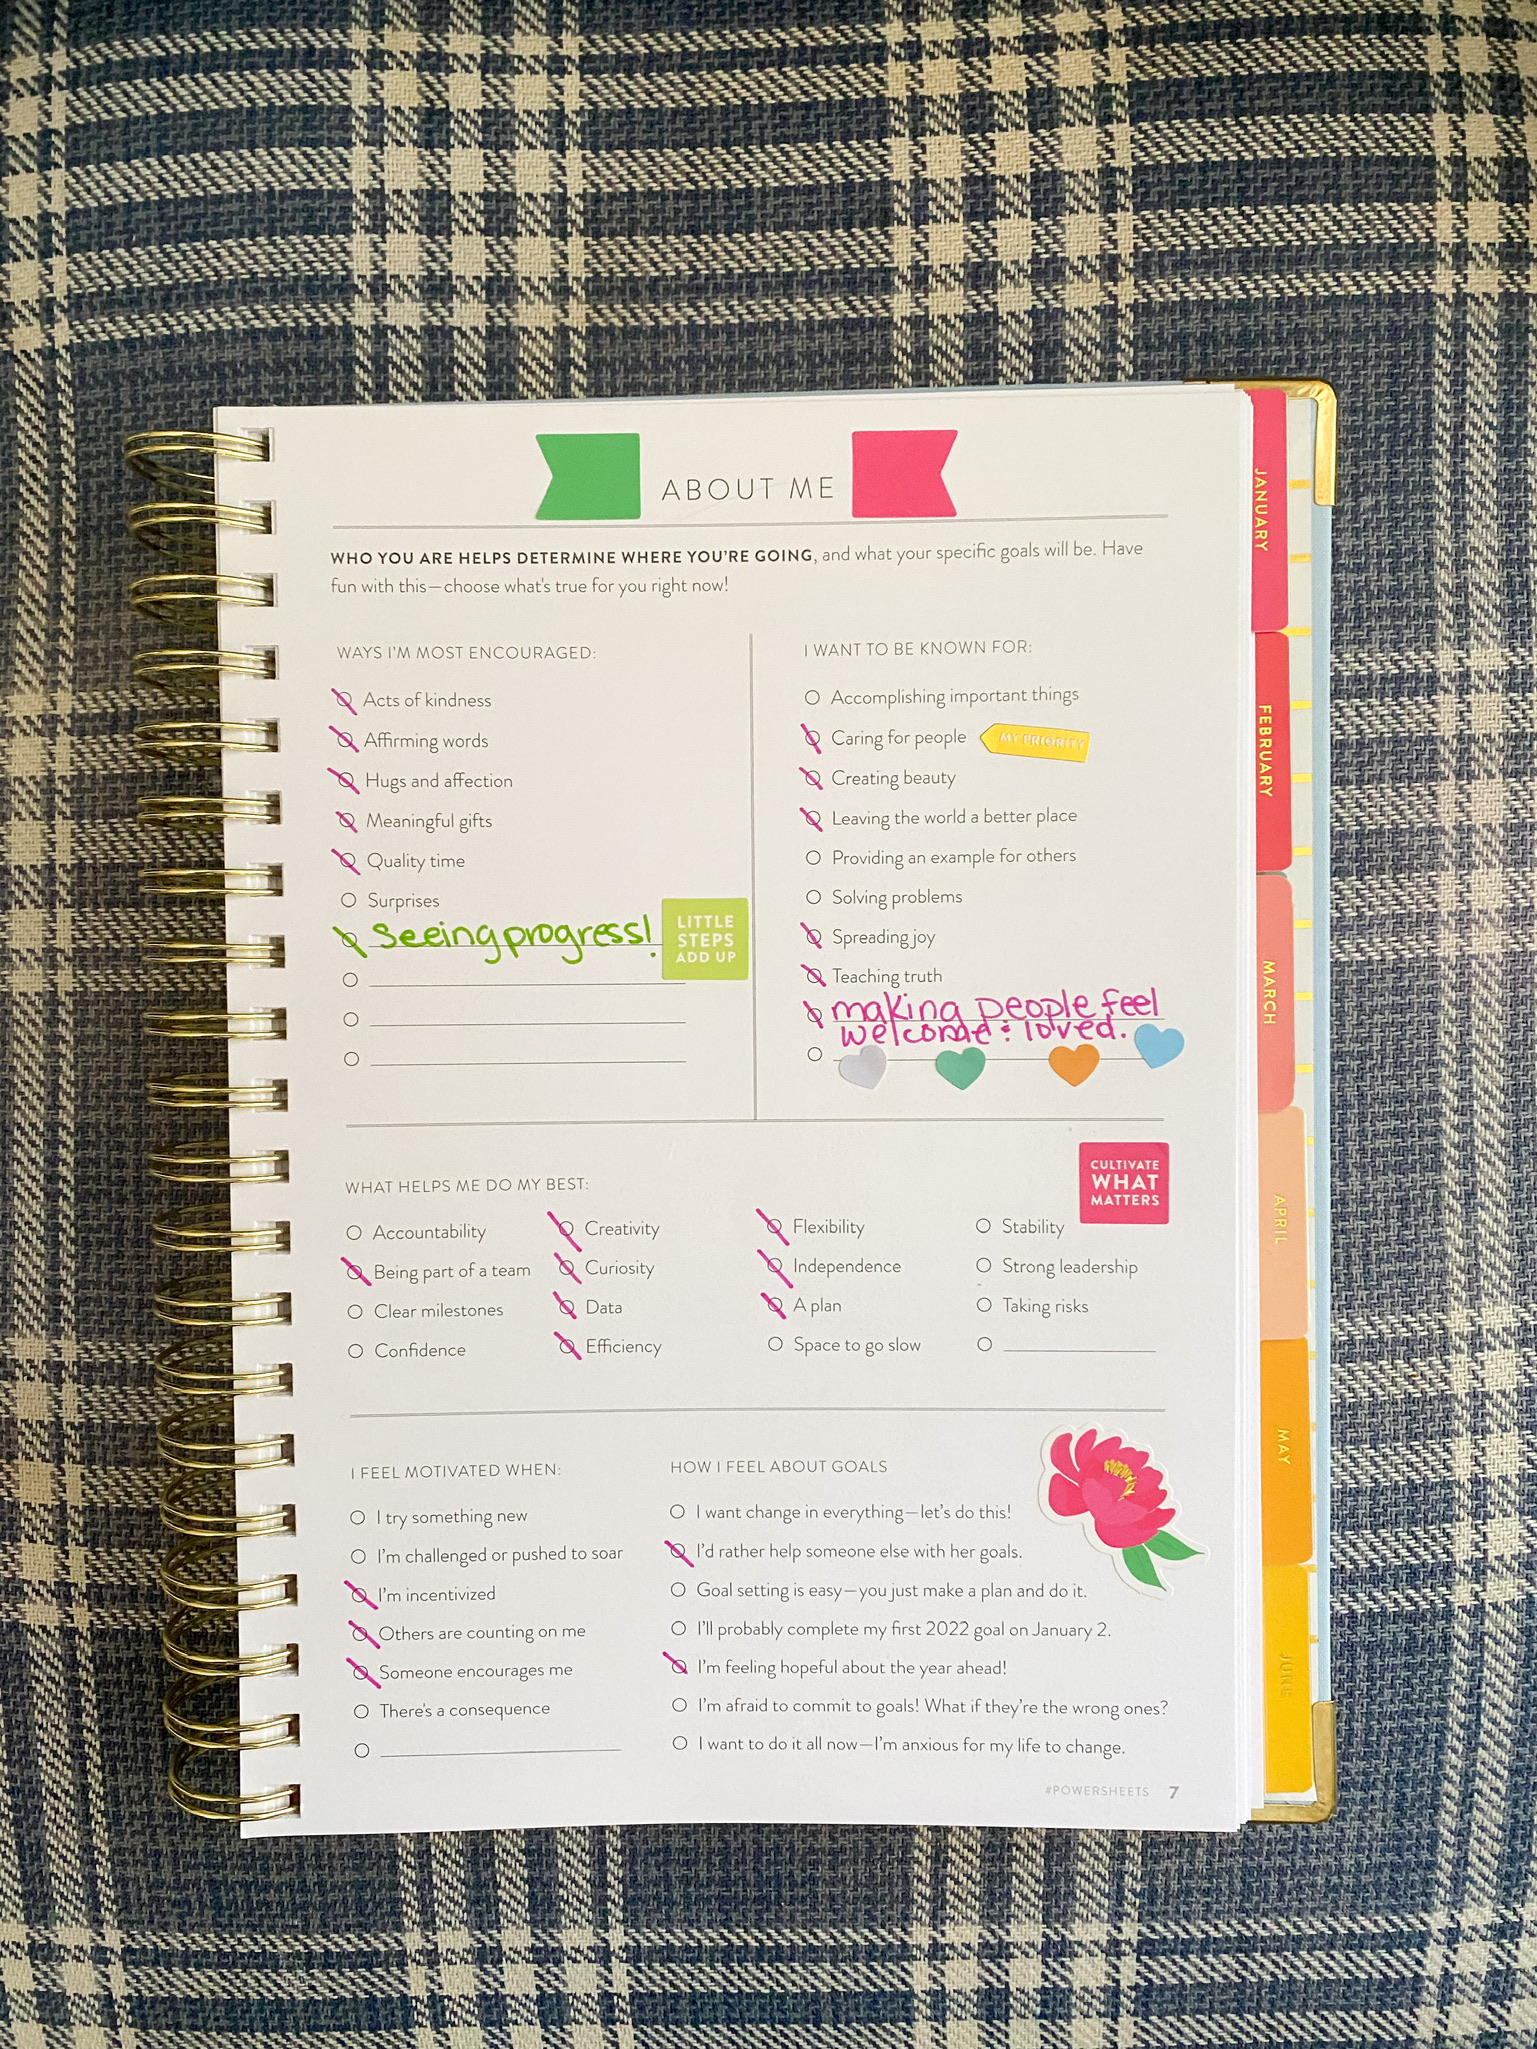 ABOUT ME
WHO YOU ARE HELPS DETERMINE WHERE YOU'RE GOING, and what your specific goals will be. Have
fun with this—choose what's true for you right now!
WAYS I'M MOST ENCOURAGED:
Acts of kindness
Affirming words
Hugs and affection
Meaningful gifts
Quality time
Surprises
Seeing progress!
LITTLE
STEPS
ADD UP
I WANT TO BE KNOWN FOR:
Accomplishing important things
Caring for people
MY PRIORITY
Creating beauty
Leaving the world a better place
Providing an example for others
Solving problems
Spreading joy
Teaching truth
making people feel
welcome & loved.
CULTIVATE
WHAT
MATTERS
WHAT HELPS ME DO MY BEST:
Accountability
Being part of a team
Clear milestones
Confidence
Creativity
Curiosity
Data
Efficiency
Flexibility
Independence
A plan
Space to go slow
Stability
Strong leadership
Taking risks
I FEEL MOTIVATED WHEN:
I try something new
I'm challenged or pushed to soar
I'm incentivized
Others are counting on me
Someone encourages me
There's a consequence
HOW I FEEL ABOUT GOALS
I want change in everything—let's do this!
I'd rather help someone else with her goals.
Goal setting is easy—you just make a plan and do it.
I'll probably complete my first 2022 goal on January 2.
I'm feeling hopeful about the year ahead!
I'm afraid to commit to goals! What if they're the wrong ones?
I want to do it all now—I'm anxious for my life to change.
#POWERSHEETS 7
JANUARY
FEBRUARY
MARCH
APRIL
MAY
JUNE